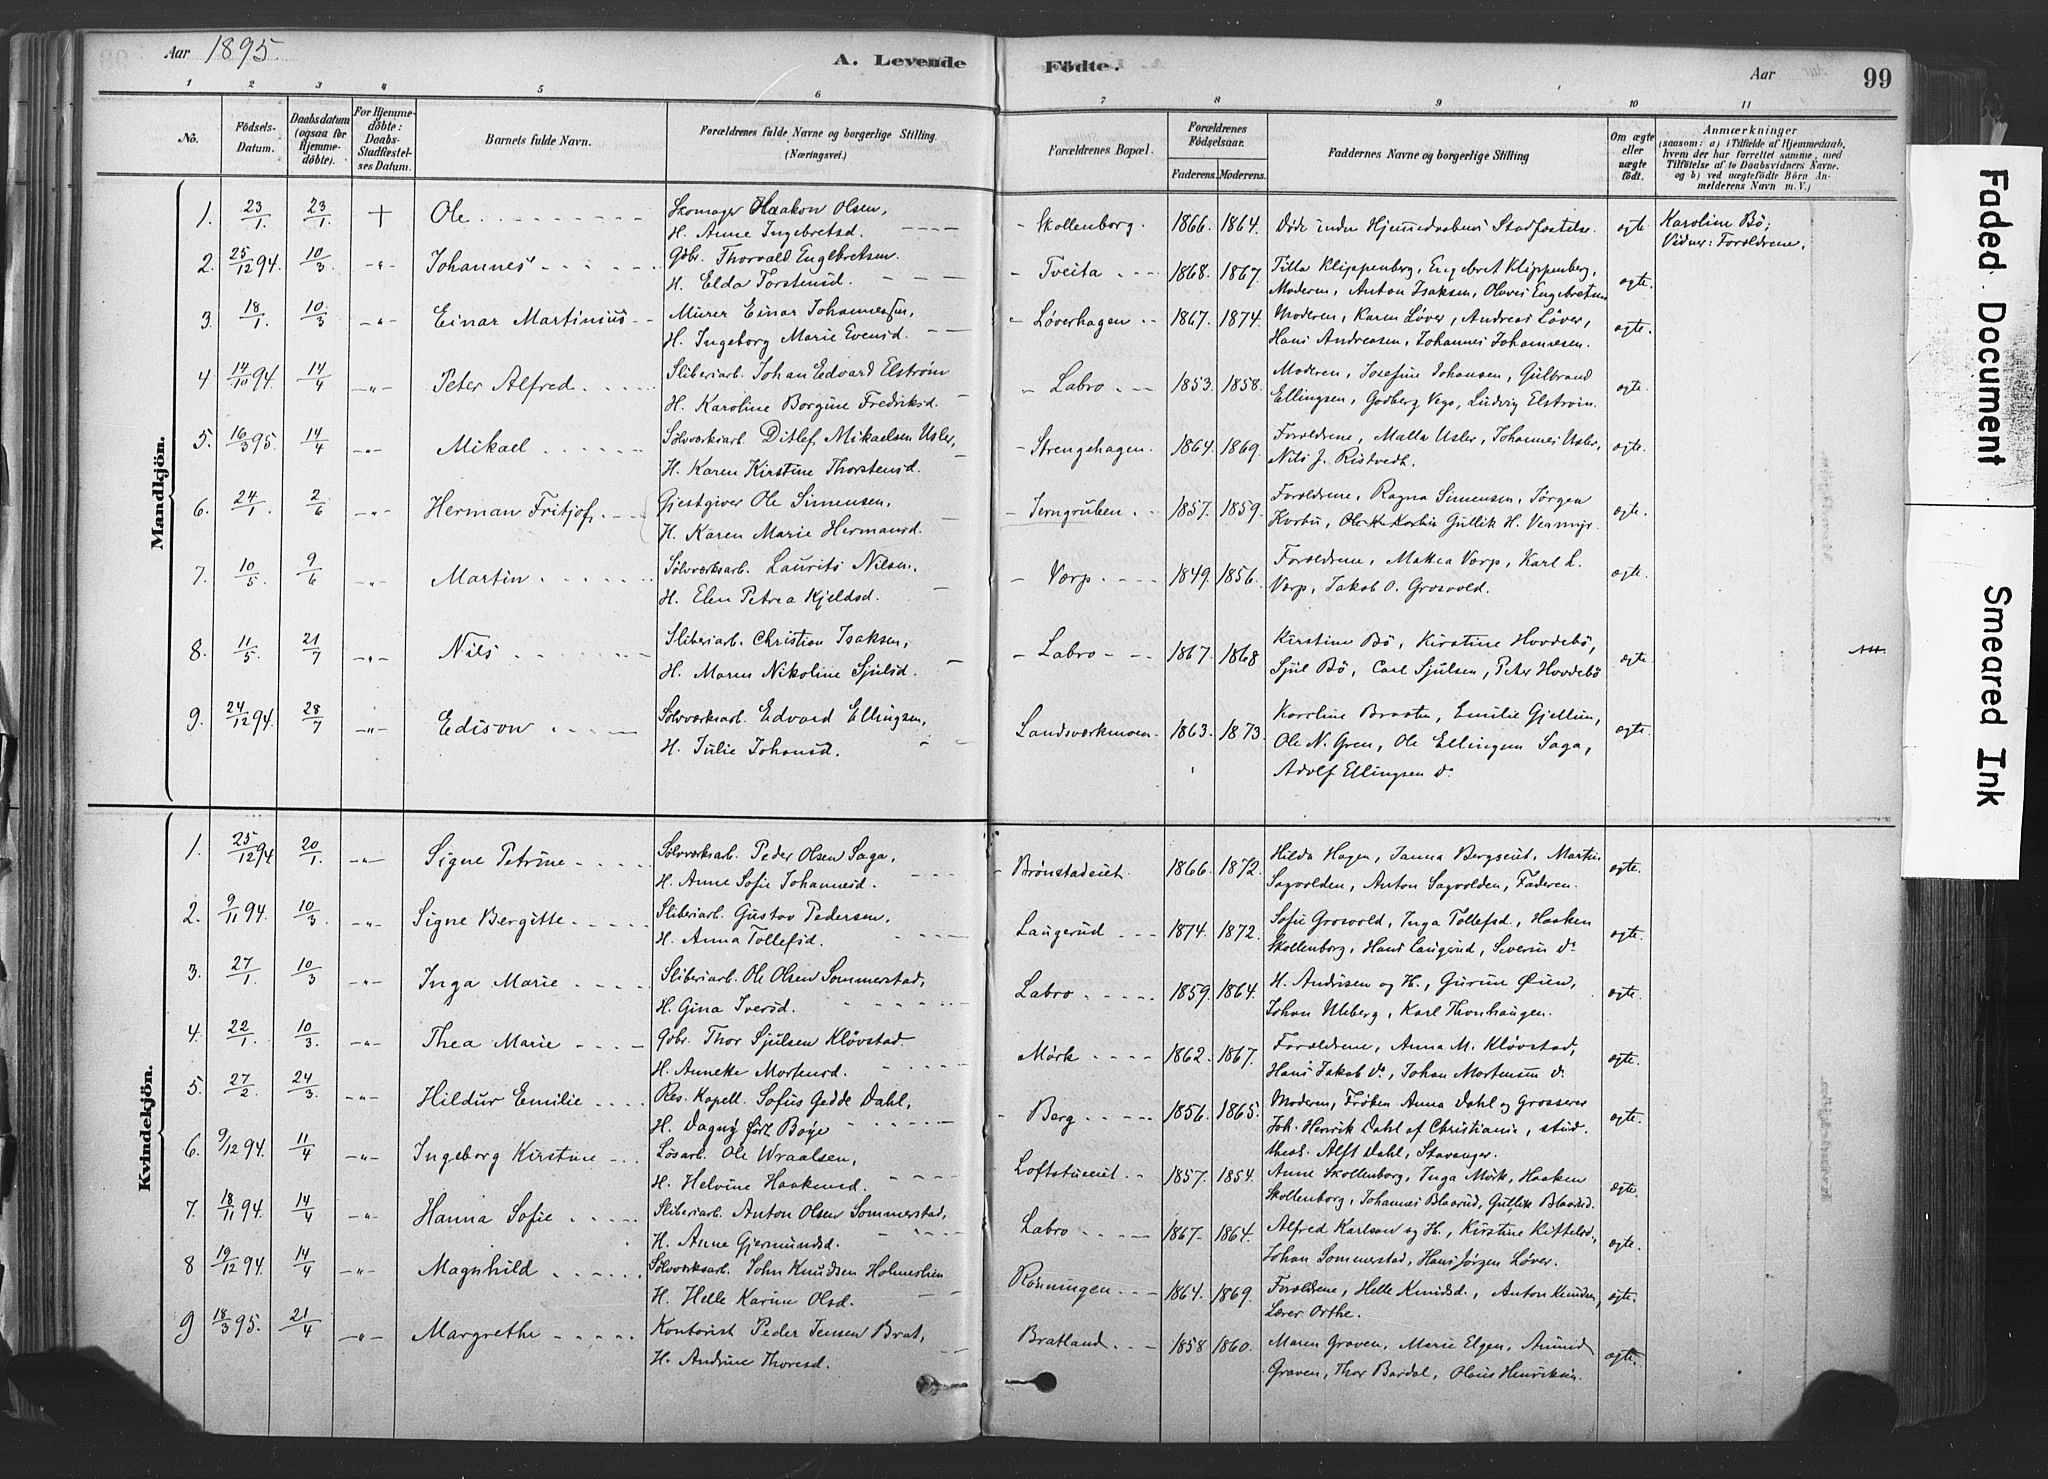 Aar 1895.
A. Levende
Födte.
Aar
99
1 2 3 4 5 6 7 8 9 10 11
No.
Födsels-Datum.
Daabsdatum (ogsaa for Hjemme-döbte).
For Hjemme-döbte: Daabs-Stadfæstel-ses Datum.
Barnets fulde Navn.
Forældrenes fulde Navne og borgerlige Stilling.
(Næringsvei.)
Forældrenes Bopæl.
Forældrenes Födselsaar.
Faderens. Moderens.
Faddernes Navne og borgerlige Stilling
Om ægte eller uægte födt.
Anmærkninger
(saasom: a) i Tilfælde af Hjemmedaab, hvem der har forrettet samme, med Tilföielse af to Daabsvidners Navne, og b) ved uægtefödte Börn An-melderens Navn m. V.)
Mandkjön.
1. 23/1. 23/1. + Ole Skomager Haakon Olsen, H. Anne Ingebretsd. Skollenborg. 1866. 1864. Døde inden Hjemmedaabens Stadfæstelse. ægte. Karoline Bö; Vidner: Forældrene.
2. 25/12 94. 10/3 -"- Johannes Gbr. Thorvald Engebretsen. H. Elda Torstensd. Tveita 1868. 1867. Tilla Klippenberg, Engebret Klippenberg, Moderen, Anton Isaksen, Olaves Engebretsen ægte.
3. 18/1. 10/3 -"- Einar Martinius Murer Einar Johannessen, H. Ingeborg Marie Evensd. Løverhagen 1867. 1874. Moderen, Karen Løver, Andreas Løver, Hans Andreasen, Johannes Johannesen. ægte.
4 14/10 94. 14/4 -"- Peter Alfred Sliberiarb. Johan Edvard Elstrøm H. Karoline Borgine Fredriksd. Labro 1853. 1858. Moderen, Josefine Johansen, Gulbrand Ellingsen, Godberg Vego, Ludvig Elstrøm. ægte.
5. 16/3 95. 14/4 -"- Mikael Sølvværksarb. Ditlef Mikaelsen Usler, H. Karen Kirstine Thorstensd. Strengehagen. 1864. 1869. Forældrene, Malla Usler, Johannes Usler, Nils J. Ristvedt. ægte.
6. 24/1. 2/6 -"- Herman Fritjof. Gjestgiver Ole Simensen, H. Karen Marie Hermansd. Jerngruben. 1857. 1859. Forældrene, Ragna Simensen, Jørgen Korbu, Ole K. Korbu Gullik H. ægte.
7. 10/5. 9/6 -"- Martin Sølvværksarb. Laurits Nilsen, H. Elen Petrea Kjeldsd. Værp. 1849. 1856. Forældrene, Mathea Værp, Karl L. Værp, Jakob O. Grosvold. ægte.
8. 11/5. 21/7 -"- Nils Sliberiarb. Christian Isaksen, H. Maren Nikoline Sjulsd. Labro 1867. 1868 Kirstine Bö, Kirstine Hovdebö, Sjul Bö, Carl Sjulsen, Peter Hovdebö ægte.
9. 24/12 94. 28/7 -"- Edison Sølvværksarb. Edvard Ellingsen, H. Julie Johansd. Landsværkmoen. 1863. 1873. Karoline Braaten, Emilie Gjellum, Ole N. Gren, Ole Ellingsen Saga, Adolf Ellingsen do ægte.
Kvindekjön.
1. 25/12 94. 20/1. -"- Signe Petrine Sølvværksarb. Peder Olsen Saga, H. Anne Sofie Johannesd. Brønstadeiet. 1866. 1872. Hilda Hagen, Janna Bergseiet, Martin Sagvolden, Anton Sagvolden, Faderen. ægte.
2. 9/11 94. 10/3. -"- Signe Bergitte Sliberiarb. Gustav Pedersen, H. Anna Tollefsd. Laugerud 1874. 1872. Sofie Grosvold, Inga Tollefsd., Haaken Skollenborg, Hans Laugerud, Severin do ægte.
3. 27/1. 10/3 -"- Inga Marie Sliberiarb. Ole Olsen Sommerstad, H. Gina Iversd. Labro 1859. 1864. H. Andersen og H., Gurine Øien, Johan Uleberg, Karl Thonhaugen. ægte.
4. 22/1. 10/3. -"- Thea Marie Gbr. Thor Sjulsen Kløvstad. H. Annette Mortensd. Mørk 1862. 1867. Forældrene, Anna M. Kløvstad, Hans Jakob do, Johan Mortensen do. ægte.
5. 27/2. 24/3. -"- Hildur Emilie Res. Kapell. Sofus Gedde Dahl, H. Dagny født Boye Berg 1856. 1865. Moderen, Frøken Anna Dahl og Grosserer Joh. Henrik Dahl af Christiania, stud. theol. Alft Dahl, Stavanger. ægte.
6. 9/12 94. 11/4 -"- Ingeborg Kirstine Løsarb. Ole Wraalsen, H. Helvine Haakensd. Loftstueiet 1857. 1854. Anne Skollenborg, Inga Mörk, Haaken Skollenborg, Johannes Blaarud, Gullik Blaarud. ægte.
7. 18/11 94. 14/4 -"- Hanna Sofie Sliberiarb. Anton Olsen Sommerstad, H. Anne Gjermundsd. Labro 1867. 1864. Alfred Karlsen og H., Kirstine Kittelsd., Johan Sommerstad, Hans Jørgen Løver. ægte.
8 19/12 94. 14/4 -"- Magnhild Sølvværksarb. John Knudsen Holmeslien H. Helle Karine Olsd. Rønningen 1864. 1869. Forældrene, Helle Knudsd., Anton Knudsen, Lærer Orthe. ægte.
9 18/3 95. 21/4 -"- Margrethe Kontorist Peder Jensen Brat, H. Andrine Thoresd. Bratland 1858 1860. Maren Graven, Marie Elgen, Amund Graven, Thor Bardal, Olaus Henriksen. ægte.
Faded Document
Smeared Ink